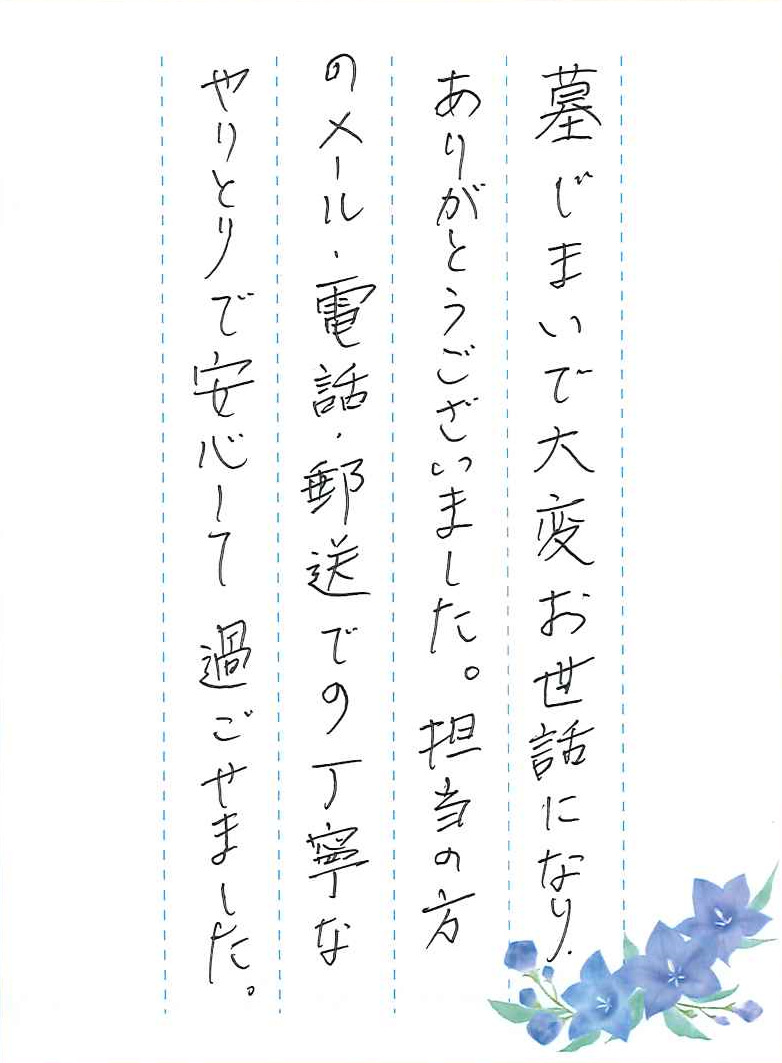 墓じまいで大変お世話になり、
ありがとうございました。担当の方
のメール・電話・郵送での丁寧な
やりとりで安心して過ごせました。